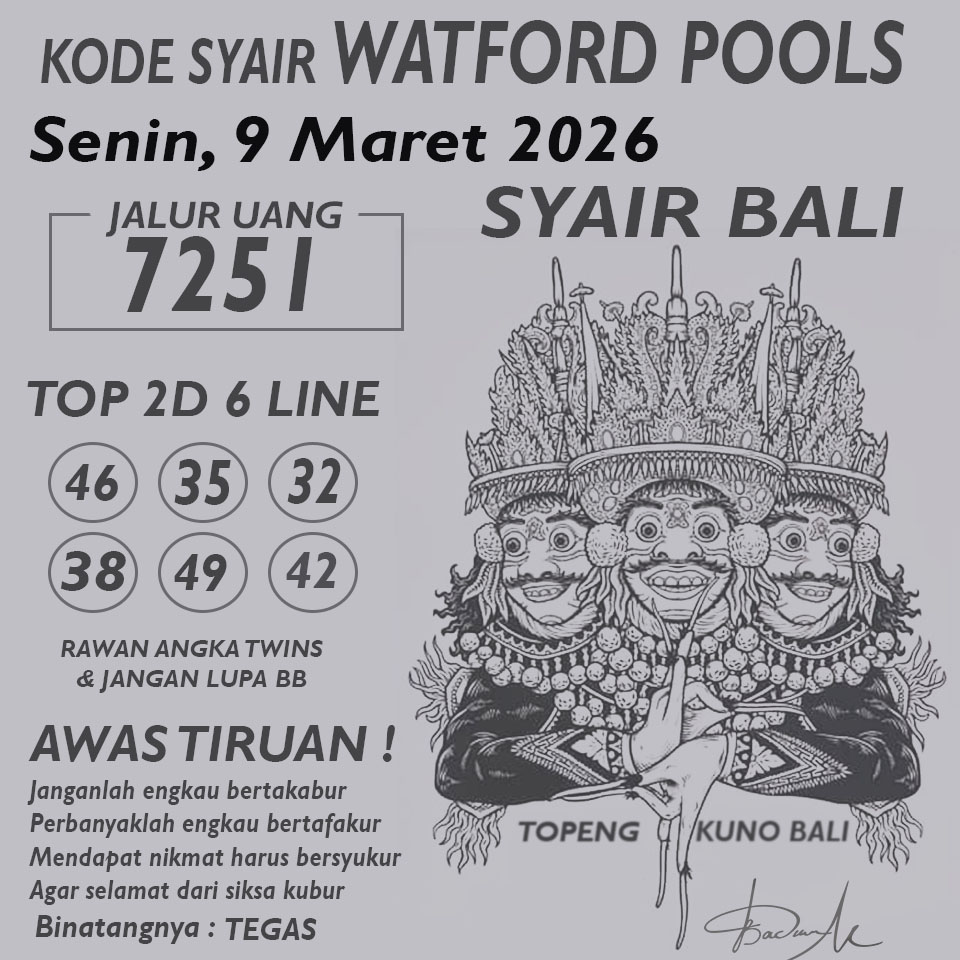 KODE SYAIR WATFORD POOLS
Senin, 9 Maret 2026
SYAIR BALI
JALUR UANG
7251
TOP 2D 6 LINE
46 35 32
38 49 42
RAWAN ANGKA TWINS
& JANGAN LUPA BB
AWAS TIRUAN !
Janganlah engkau bertakabur
Perbanyaklah engkau bertafakur
Mendapat nikmat harus bersyukur
Agar selamat dari siksa kubur
Binatangnya : TEGAS
TOPENG KUNO BALI